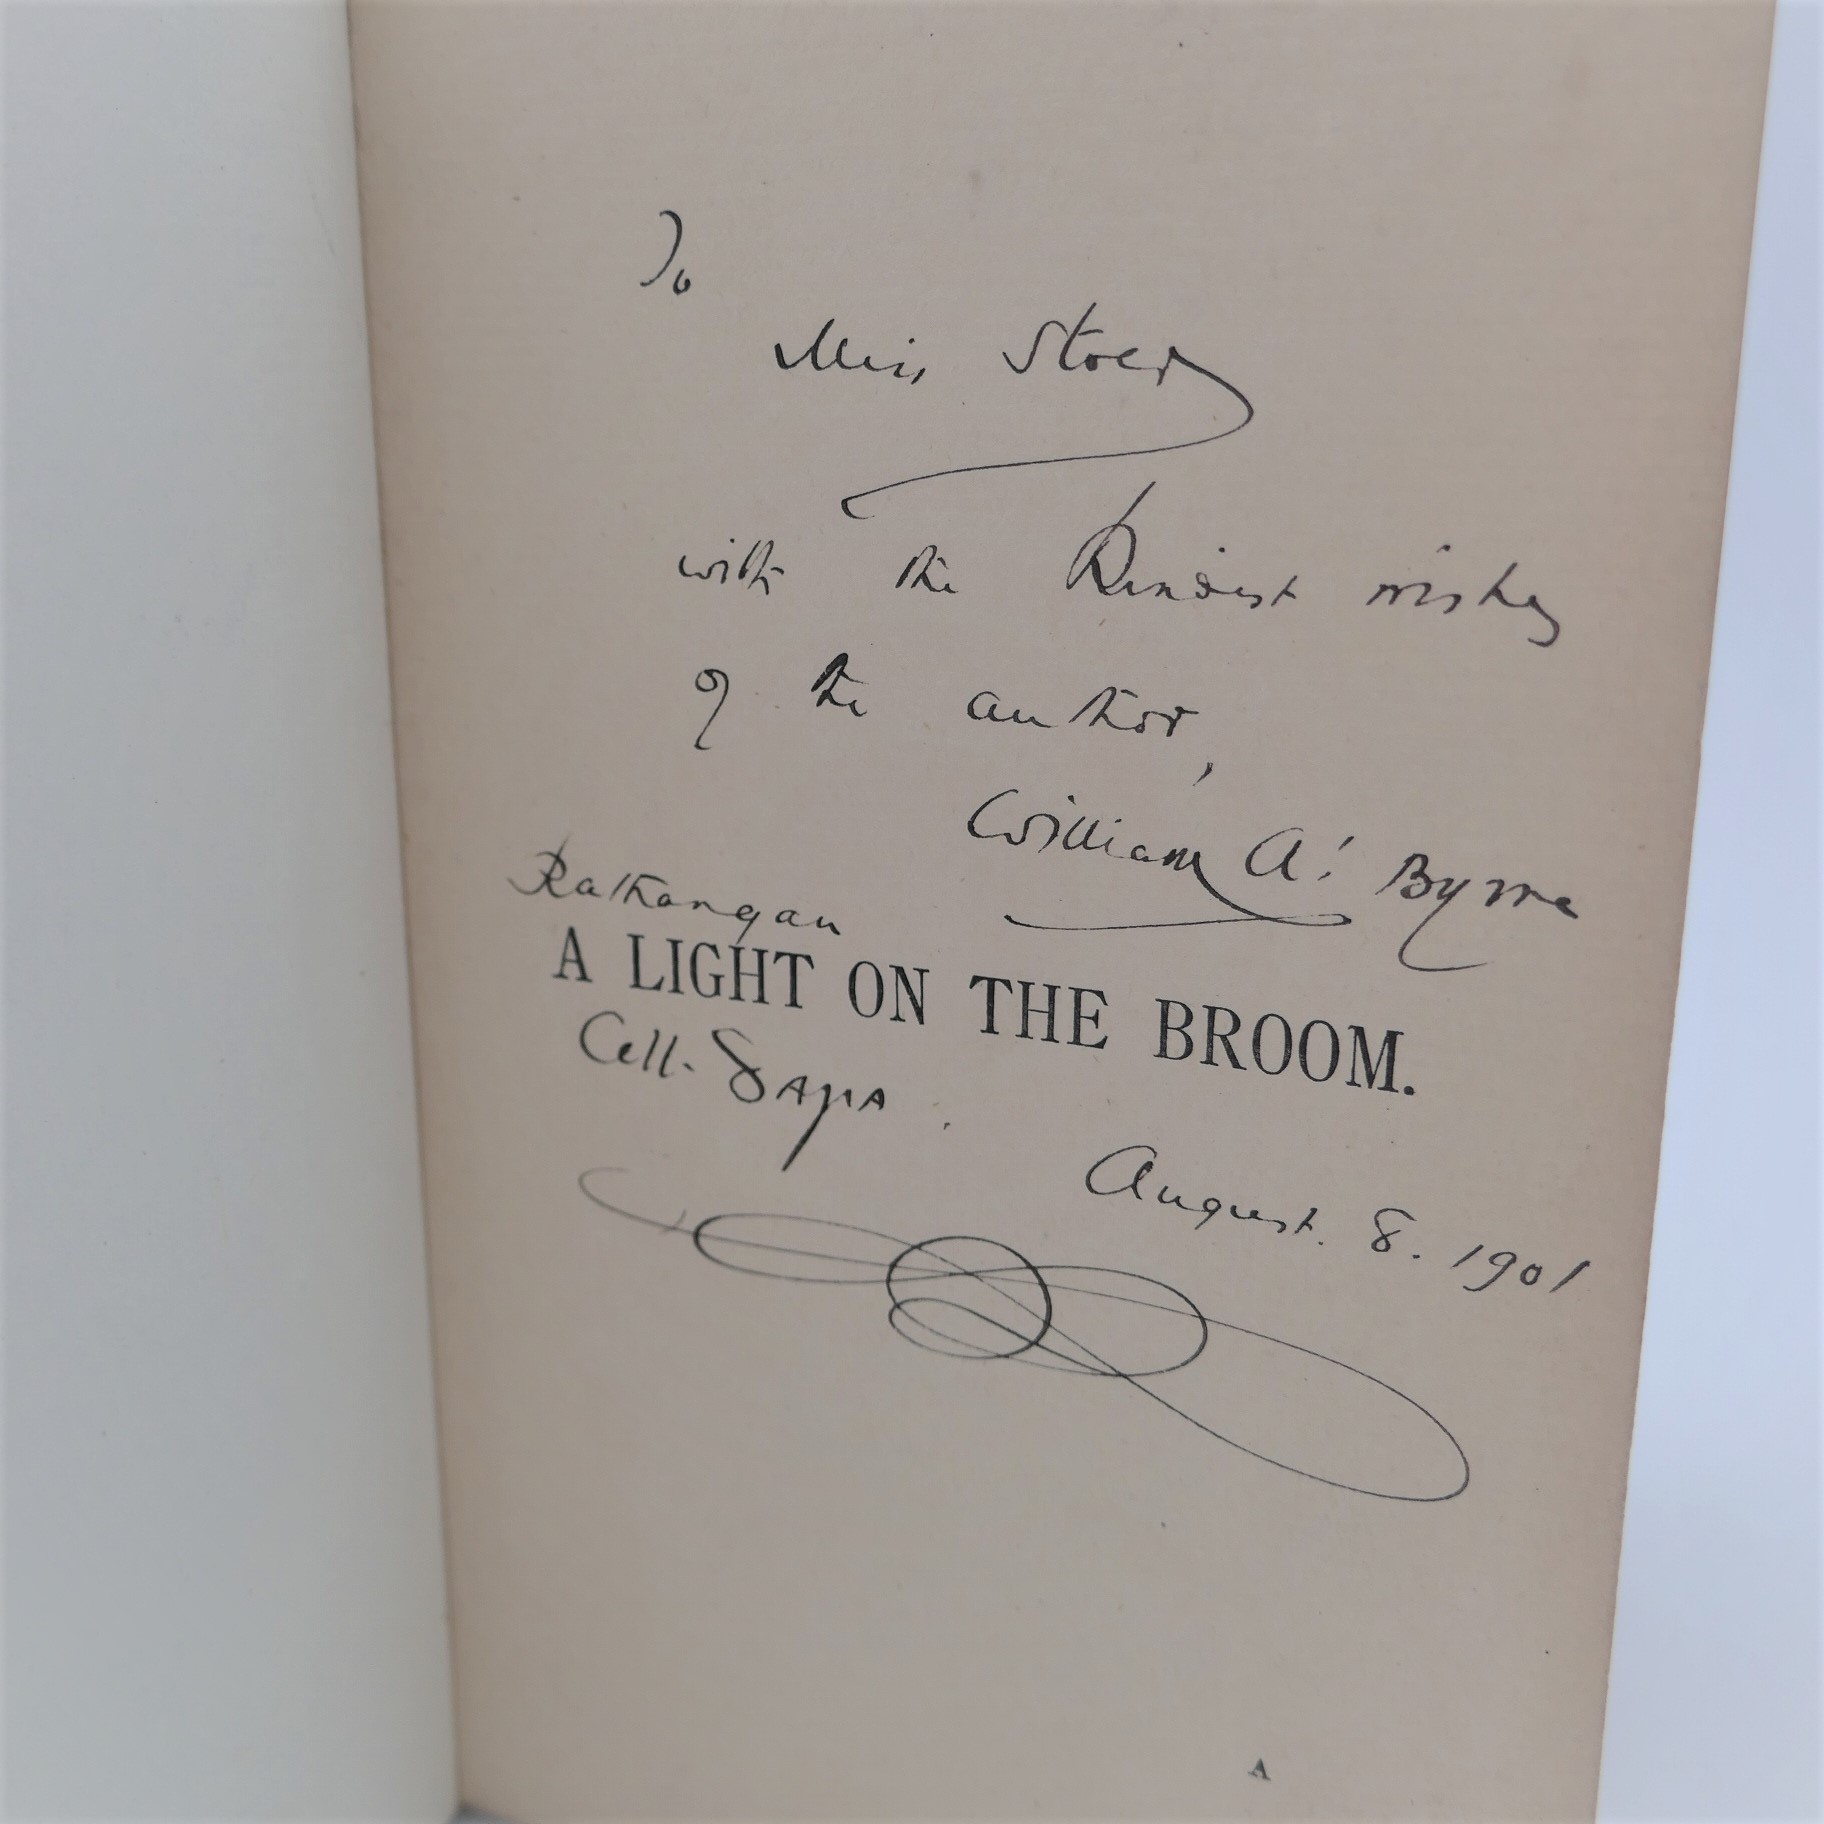 To
Miss
with the Kindest wishes
of the author,
William A. Byrne
Rathangan
A LIGHT ON THE BROOM.
Cill-Dara.
August. 8. 1901
A